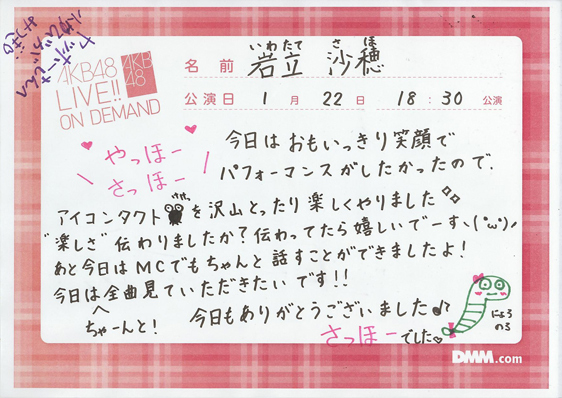 AKB48
LIVE!!
ON DEMAND
AKB
48
いわたて さほ
名前 岩立 沙穂
公演日 1月22日 18:30公演
やっほー
さっほー
今日はおもいっきり笑顔で
パフォーマンスがしたかったので、
アイコンタクトを沢山とったり楽しくやりました
"楽しさ"伝わりましたか?伝わってたら嬉しいでーすヽ(°ω°)ノ
あと今日はMCでもちゃんと話すことができましたよ!
今日は全曲見ていただきたいです!!
ちゃーんと!
今日もありがとうございました♪
さっほーでした♡
にょろ
のろ
DMM.com